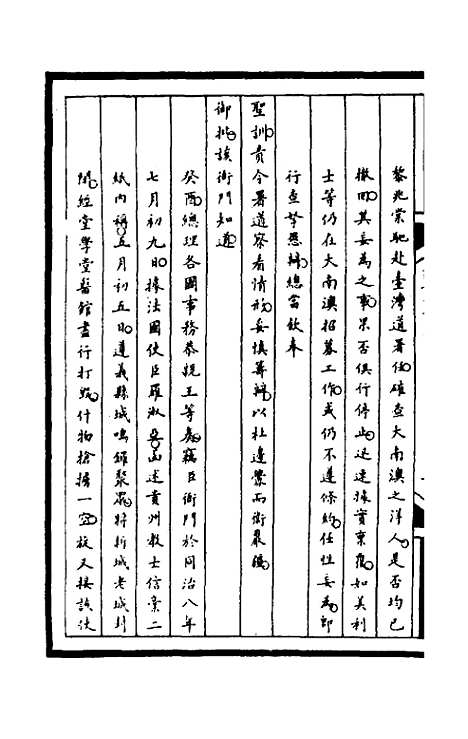 黎兆棠馳赴臺灣道署任確查大南澳之洋人是否均已
撤回其妄為之事果否俱行停止迅速據實稟覆如美利
士等仍在大南澳招募工作或仍不遵條約任性妄為即
行查拏懲辦總當欽奉
聖訓責令署道察看情形妥慎籌辦以杜邊釁而衛嚴疆
御批該衙門知道
癸酉總理各國事務恭親王等奏竊臣衙門於同治八年
七月初九日據法國使臣羅淑亞函述貴州教士信稟二
紙內稱五月初五日遵義縣城鳴鑼聚眾將新城老城封
閉經堂學堂醫館盡行打毀什物搶擄一空旋又接該使